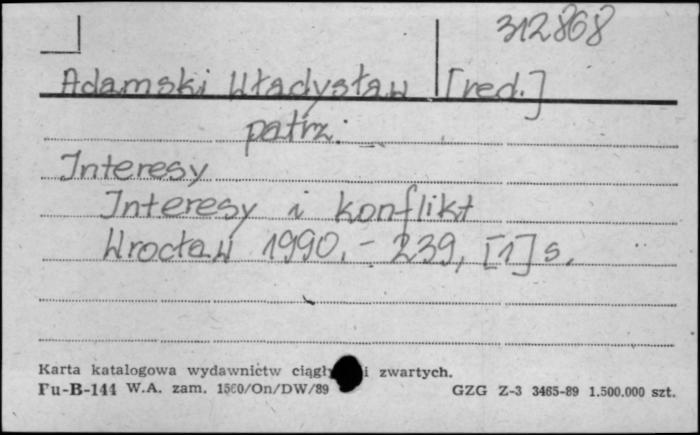 312868
Adamski Władysław [red.]
patrz:
Interesy
Interesy i konflikt
Wrocław 1990. - 239, [1] s.
Karta katalogowa wydawnictw ciągł i zwartych.
Fu-B-144 W.A. zam. 1560/On/DW/89 GZG Z-3 3465-89 1.500.000 szt.